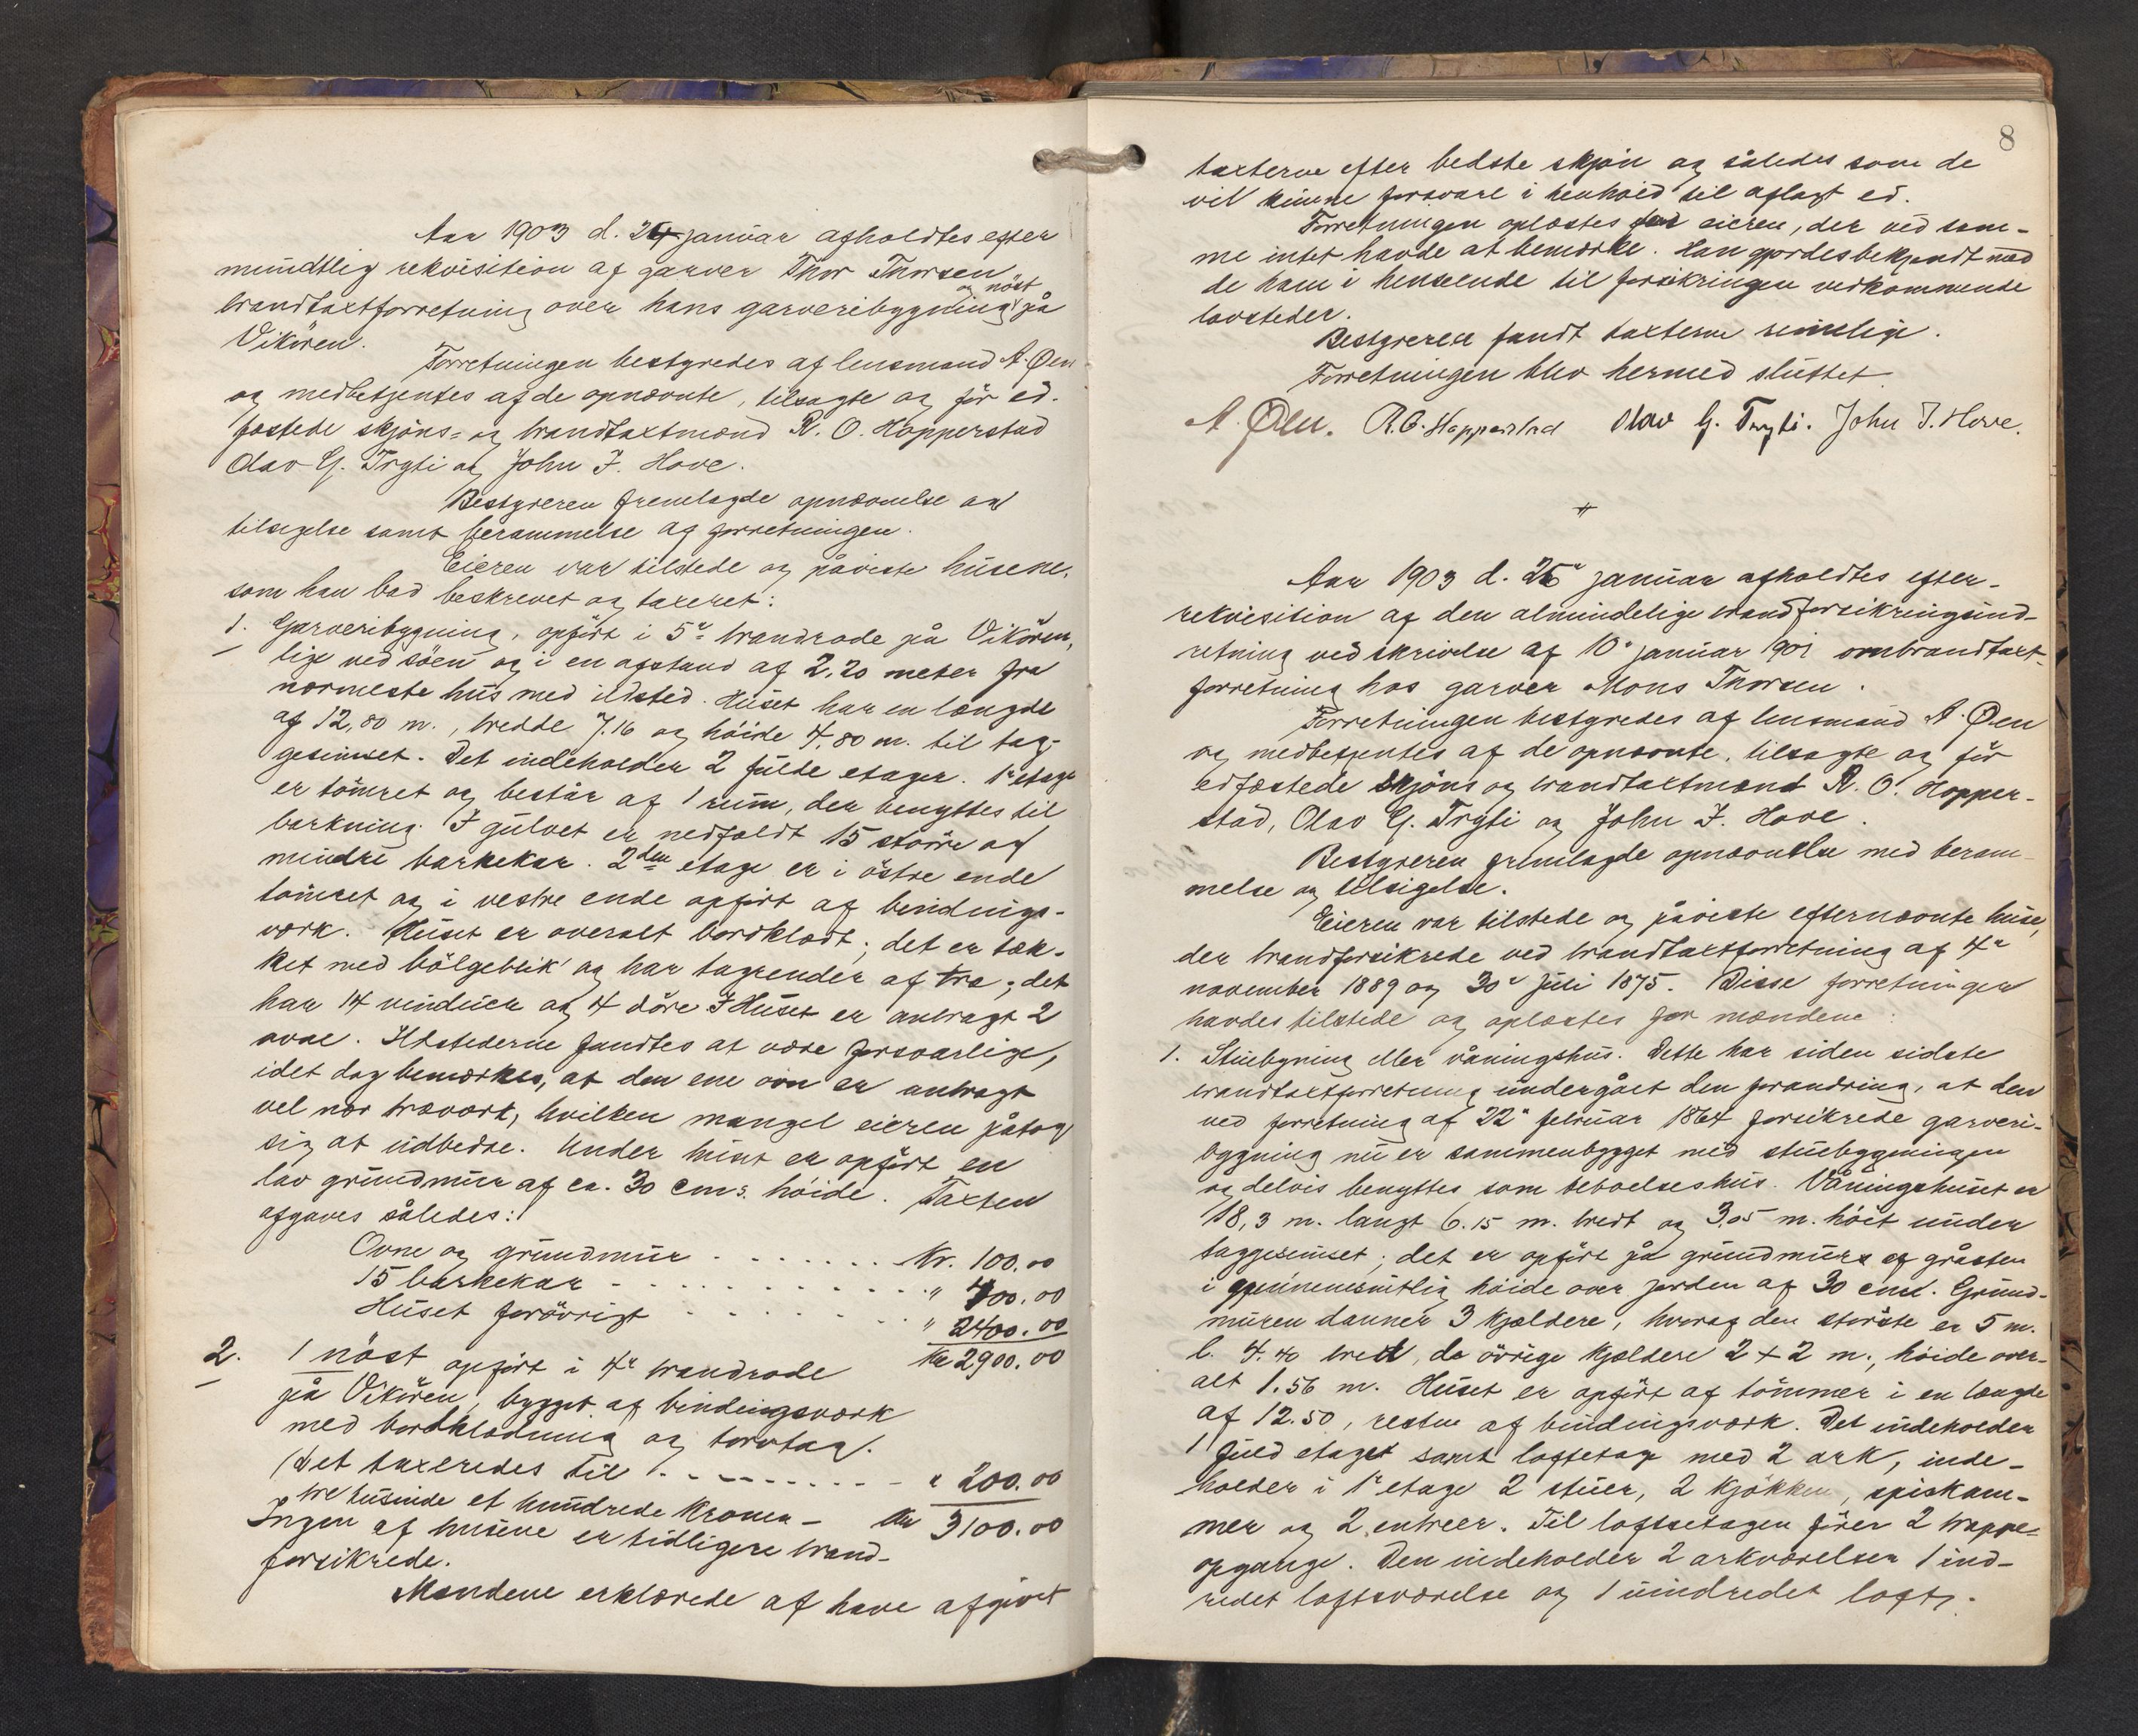 Aar 1903 d. 24 januar afholdtes efter
mundtlig rekvisition af garver Thor Thorsen
brandtaxtforretning over hans garveribygning og nöst på
Vikören.
Forretningen bestyredes af lensmand A. Øen
og medbetjentes af de opnævnte, tilsagte og för ed-
fæstede skjöns- og brandtaxtmænd R. O. Hopperstad
Olav G. Trÿti og John J. Hove.
Bestyreren fremlagde opnævnelse og
tilsigelse samt berammelse af forretningen.
Eieren var tilstede og påviste husene,
som han bad beskrevet og taxeret:
1. Garveribygning, opfört i 5te brandrode på Vikören,
lige ved söen og i en afstand af 2,20 meter fra
nærmeste hus med ildsted. Huset har en længde
af 12,80 m., bredde 7.16 og höide 4,80 m. til tag-
gesimset. Det indeholder 2 fulde etager. 1e etage
er tömret og består af 1 rum, der benyttes til
barkning. I gulvet er nedfældt 15 större og
mindre barkekar. 2den etage er i östre ende
tömret og i vestre ende opfört af bindings-
værk. Huset er overalt bordklædt; det er tæk-
ket med bölgeblik og har tagrender af træ; det
har 14 vinduer og 4 döre. I Huset er anbragt 2
ovne. Ildstederne fandtes at være forsvarlige,
idet dog bemærkes, at den ene ovn er anbragt
vel nær træværk, hvilken mangel eieren påtog
sig at udbedre. Under huset er opfört en
lav grundmur af ca. 30 cms. höide. Taxten
afgaves således:
Ovne og grundmur . . . . . . Kr. 100.00
15 barkekar . . . . . . . . . " 400.00
Huset forövrigt . . . . . . . " 2400.00
Kr 2900.00
2. 1 nöst opfört i 4e brandrode
på Vikören, bygget af bindingsværk
med bordklædning og torvtag.
Det taxeredes til . . . . . . . " 200.00
tre tusinde et hundrede kroner — Kr 3100.00
Ingen af husene er tidligere brand-
forsikrede.
Mændene erklærede af have afgivet
8
taxterne efter bedste skjön og således som de
vil kunne forsvare i henhold til aflagt ed.
Forretningen oplæstes for eieren, der ved sam-
me intet havde at bemærke. Han gjordes bekjendt med
de ham i henseende til forsikringen vedkommende
lovsteder.
Bestyreren fandt taxterne rimelige.
Forretningen blev hermed sluttet.
A. Øen. R. O. Hopperstad Olav G. Tryti. John J. Hove.
Aar 1903 d. 26e januar afholdtes efter
rekvisition af den almindelige brandforsikringsind-
retning ved skrivelse af 10e januar 1901 ombrandtaxt-
forretning hos garver Mons Thorsen.
Forretningen bestyredes af lensmand A. Øen
og medbetjentes af de opnævnte, tilsagte og för
edfæstede skjöns og brandtaxtmænd R. O. Hopper-
stad, Olav G. Tryti og John J. Hove.
Bestyreren fremlagde opnævnelse med beram-
melse og tilsigelse.
Eieren var tilstede og påviste efternævnte huse,
der brandforsikrede ved brandtaxtforretning af 4e
november 1889 og 30e juli 1875. Disse forretninger
havdes tilstede og oplæstes for mændene.
1. Stuebygning eller våningshus. Dette har siden sidste
brandtaxtforretning undergået den forandring, at den
ved forretning af 22e februar 1864 forsikrede garveri-
bygning nu er sammenbygget med stuebygningen
og delvis benyttes som beboelseshus. Våningshuset er
18,3 m. langt 6.15 m. bredt og 3.05 m. höit under
taggesimset; det er opfört på grundmur af gråsten
i gjennemsnitlig höide over jorden af 30 cms. Grund-
muren danner 3 kjældere, hvoraf den störste er 5 m.
l. 4.40 bred, de övrige kjeldere 2 + 2 m., höide over-
alt 1.56 m. Huset er opfört af tömmer i en længde
af 12.50, resten af bindingsværk. Det indeholder
1 fuld etage samt loftetage med 2 ark, inde-
holder i 1e etage 2 stuer, 2 kjökken, spiskam-
mer og 2 entreer. Til loftsetagen förer 2 trappe-
opgange. Den indeholder 2 arkværelser 1 ind-
redet loftsværelse og 1 uindredet lofts-